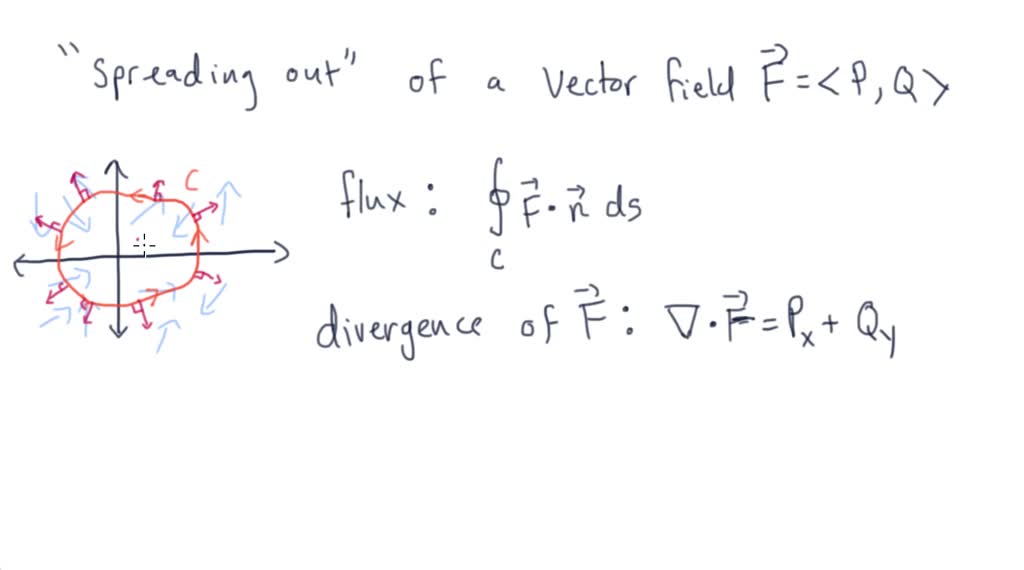 "Spreading out" of a vector field F⃗ = <P, Q>
C
flux : ∮_C F⃗ · n⃗ ds
divergence of F⃗ : ∇ · F⃗ = P_x + Q_y